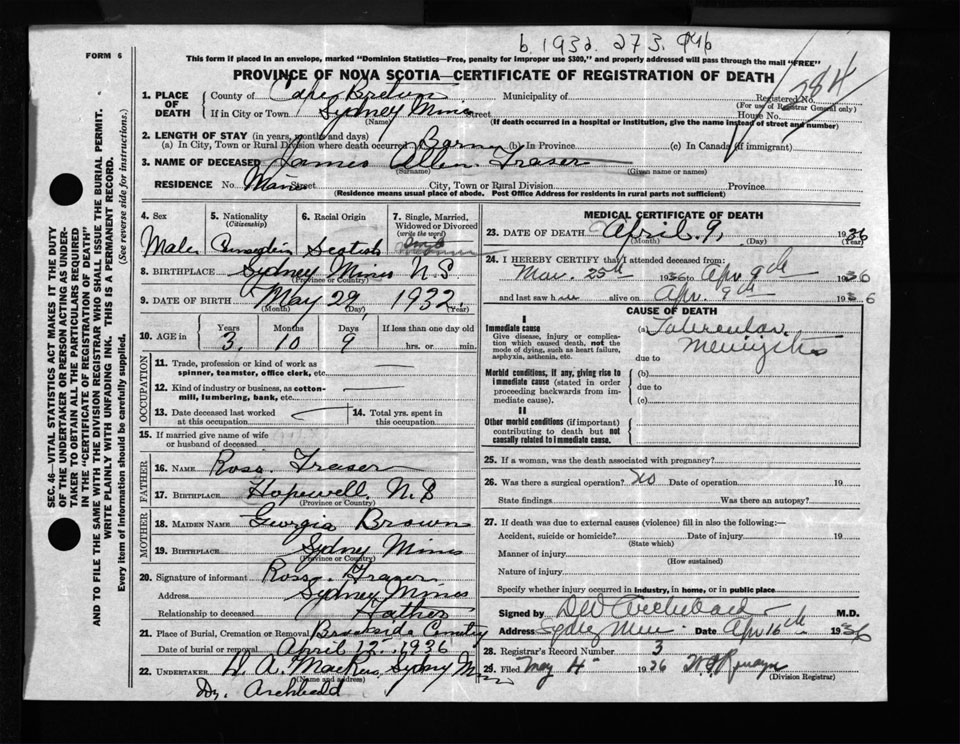 b. 1932. 273.
FORM 6
This form if placed in an envelope, marked "Dominion Statistics—Free, penalty for improper use $300," and properly addressed will pass through the mail "FREE"
PROVINCE OF NOVA SCOTIA—CERTIFICATE OF REGISTRATION OF DEATH
1. PLACE OF DEATH
County of Cape Breton Municipality of
Registered No. 284
(For use of Registrar General only)
If in City or Town Sydney Mines Street House No.
(Name) (If death occurred in a hospital or institution, give the name instead of street and number)
2. LENGTH OF STAY (in years, months and days)
(a) In City, Town or Rural Division where death occurred (b) In Province (c) In Canada (if immigrant)
3. NAME OF DECEASED James Allen Fraser
(Surname) (Given name or names)
RESIDENCE No. Main Street City, Town or Rural Division Province
(Residence means usual place of abode. Post Office Address for residents in rural parts not sufficient)
SEC. 46—VITAL STATISTICS ACT MAKES IT THE DUTY
OF THE UNDERTAKER OR PERSON ACTING AS UNDER-
TAKER TO OBTAIN ALL THE PARTICULARS REQUIRED
IN THE "CERTIFICATE OF REGISTRATION OF DEATH"
AND TO FILE THE SAME WITH THE DIVISION REGISTRAR WHO SHALL ISSUE THE BURIAL PERMIT.
WRITE PLAINLY WITH UNFADING INK. THIS IS A PERMANENT RECORD.
Every item of information should be carefully supplied. (See reverse side for instructions.)
4. Sex
Male
5. Nationality
(Citizenship)
6. Racial Origin
Scotish
7. Single, Married,
Widowed or Divorced
(write the word)
8. BIRTHPLACE Sydney Mines N S
(Province or Country)
9. DATE OF BIRTH May 29, 1932
(Month) (Day) (Year)
10. AGE in
Years Months Days If less than one day old
3 10 9 hrs. or min.
OCCUPATION
11. Trade, profession or kind of work as
spinner, teamster, office clerk, etc.
12. Kind of industry or business, as cotton-
mill, lumbering, bank, etc.
13. Date deceased last worked
at this occupation
14. Total yrs. spent in
this occupation
15. If married give name of wife
or husband of deceased
FATHER
16. NAME Ross Fraser
17. BIRTHPLACE Hopewell N.B
(Province or Country)
MOTHER
18. MAIDEN NAME Georgia Brown
19. BIRTHPLACE Sydney Mines
(Province or Country)
20. Signature of informant Ross Fraser
Address Sydney Mines
Relationship to deceased Father
21. Place of Burial, Cremation or Removal Brookside Cemetry
Date of burial or removal April 12, 1936
22. UNDERTAKER Sydney Mines
(Name and address)
Dr. Archibald
MEDICAL CERTIFICATE OF DEATH
23. DATE OF DEATH April 9, 1936
(Month) (Day) (Year)
24. I HEREBY CERTIFY that I attended deceased from
Mar. 25th 1936 to Apr 9th 1936
and last saw h alive on Apr. 9th 1936
CAUSE OF DEATH
I
Immediate cause
Give disease, injury or compli-
cation which caused death, not the
mode of dying, such as heart failure,
asphyxia, asthenia, etc.
(a) Tubercular
Meningitis
due to
Morbid conditions, if any, giving rise to
immediate cause (stated in order
proceeding backwards from im-
mediate cause).
(b)
due to
(c)
II
Other morbid conditions (if important)
contributing to death but not
causally related to immediate cause.
25. If a woman, was the death associated with pregnancy?
26. Was there a surgical operation? No Date of operation 19
State findings Was there an autopsy?
27. If death was due to external causes (violence) fill in also the following:—
Accident, suicide or homicide? Date of injury 19
(State which)
Manner of injury
(How sustained)
Nature of injury
Specify whether injury occurred in industry, in home, or in public place
Signed by M.D.
Address Date Apr 16th 1936
28. Registrar's Record Number 3
29. Filed May 4 1936
(Division Registrar)